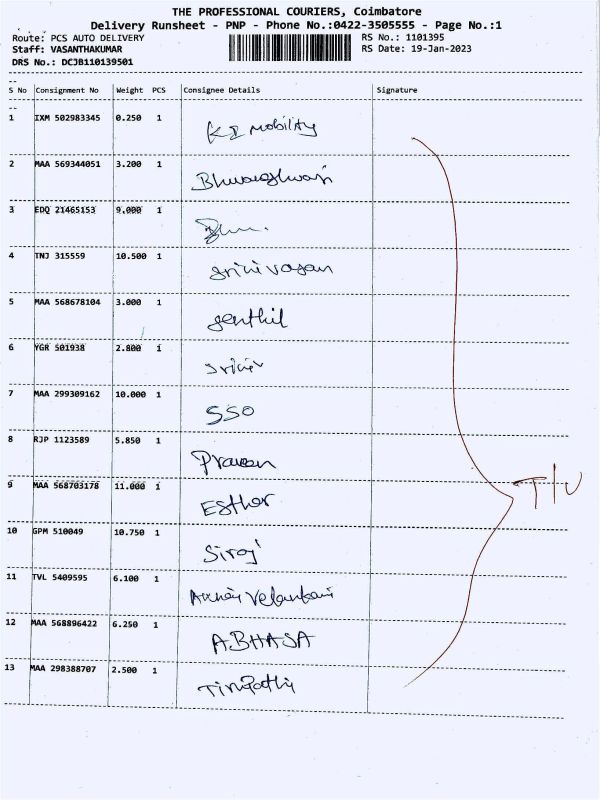 THE PROFESSIONAL COURIERS, Coimbatore
Delivery Runsheet - PNP - Phone No.:0422-3505555 - Page No.:1
Route: PCS AUTO DELIVERY RS No.: 1101395
Staff: VASANTHAKUMAR RS Date: 19-Jan-2023
DRS No.: DCJB110139501
S No Consignment No Weight PCS Consignee Details Signature
1 IXM 502983345 0.250 1 mobility
2 MAA 569344051 3.200 1
3 EDQ 21465153 9.000 1
4 TNJ 315559 10.500 1 srinivasan
5 MAA 568678104 3.000 1 senthil
6 YGR 501938 2.800 1
7 MAA 299309162 10.000 1 SSO
8 RJP 1123589 5.850 1 Praveen
9 MAA 568703178 11.000 1 Esther
10 GPM 510049 10.750 1 Siroj
11 TVL 5409595 6.100 1
12 MAA 568896422 6.250 1 ABHASA
13 MAA 298388707 2.500 1 Tirupathi